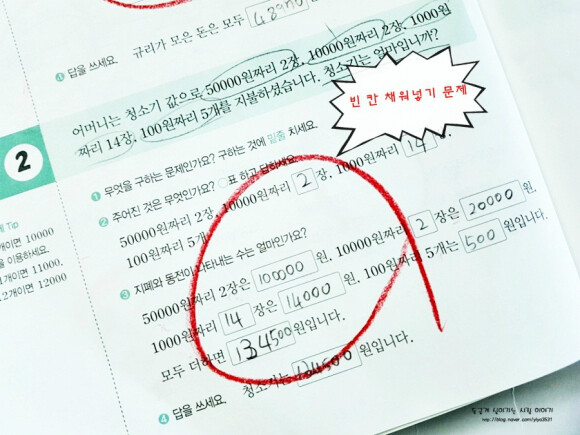 ❹ 답을 쓰세요. 규리가 모은 돈은 모두
2
어머니는 청소기 값으로 50000원짜리 2장, 10000원짜리 2장, 1000원
짜리 14장, 100원짜리 5개를 지불하셨습니다. 청소기는 얼마입니까?
빈 칸 채워넣기 문제
❶ 무엇을 구하는 문제인가요? 구하는 것에 밑줄 치세요.
❷ 주어진 것은 무엇인가요? ○표 하고 답하세요.
50000원짜리 2장, 10000원짜리 2 장, 1000원짜리 14 장,
100원짜리 5개
❸ 지폐와 동전이 나타내는 수는 얼마인가요?
50000원짜리 2장은 100000 원, 10000원짜리 2 장은 20000 원,
1000원짜리 14 장은 14000 원, 100원짜리 5개는 500 원입니다.
모두 더하면 134500 원입니다.
❹ 답을 쓰세요. 청소기는 134500 원입니다.
Tip
개이면 10000
을 이용하세요.
개이면 11000,
2개이면 12000
http://blog.naver.com/ylyo3531